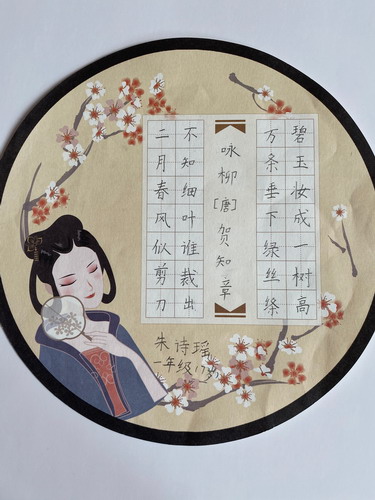 碧玉妆成一树高
万条垂下绿丝绦
咏柳[唐]贺知章
不知细叶谁裁出
二月春风似剪刀
朱诗瑶
一年级